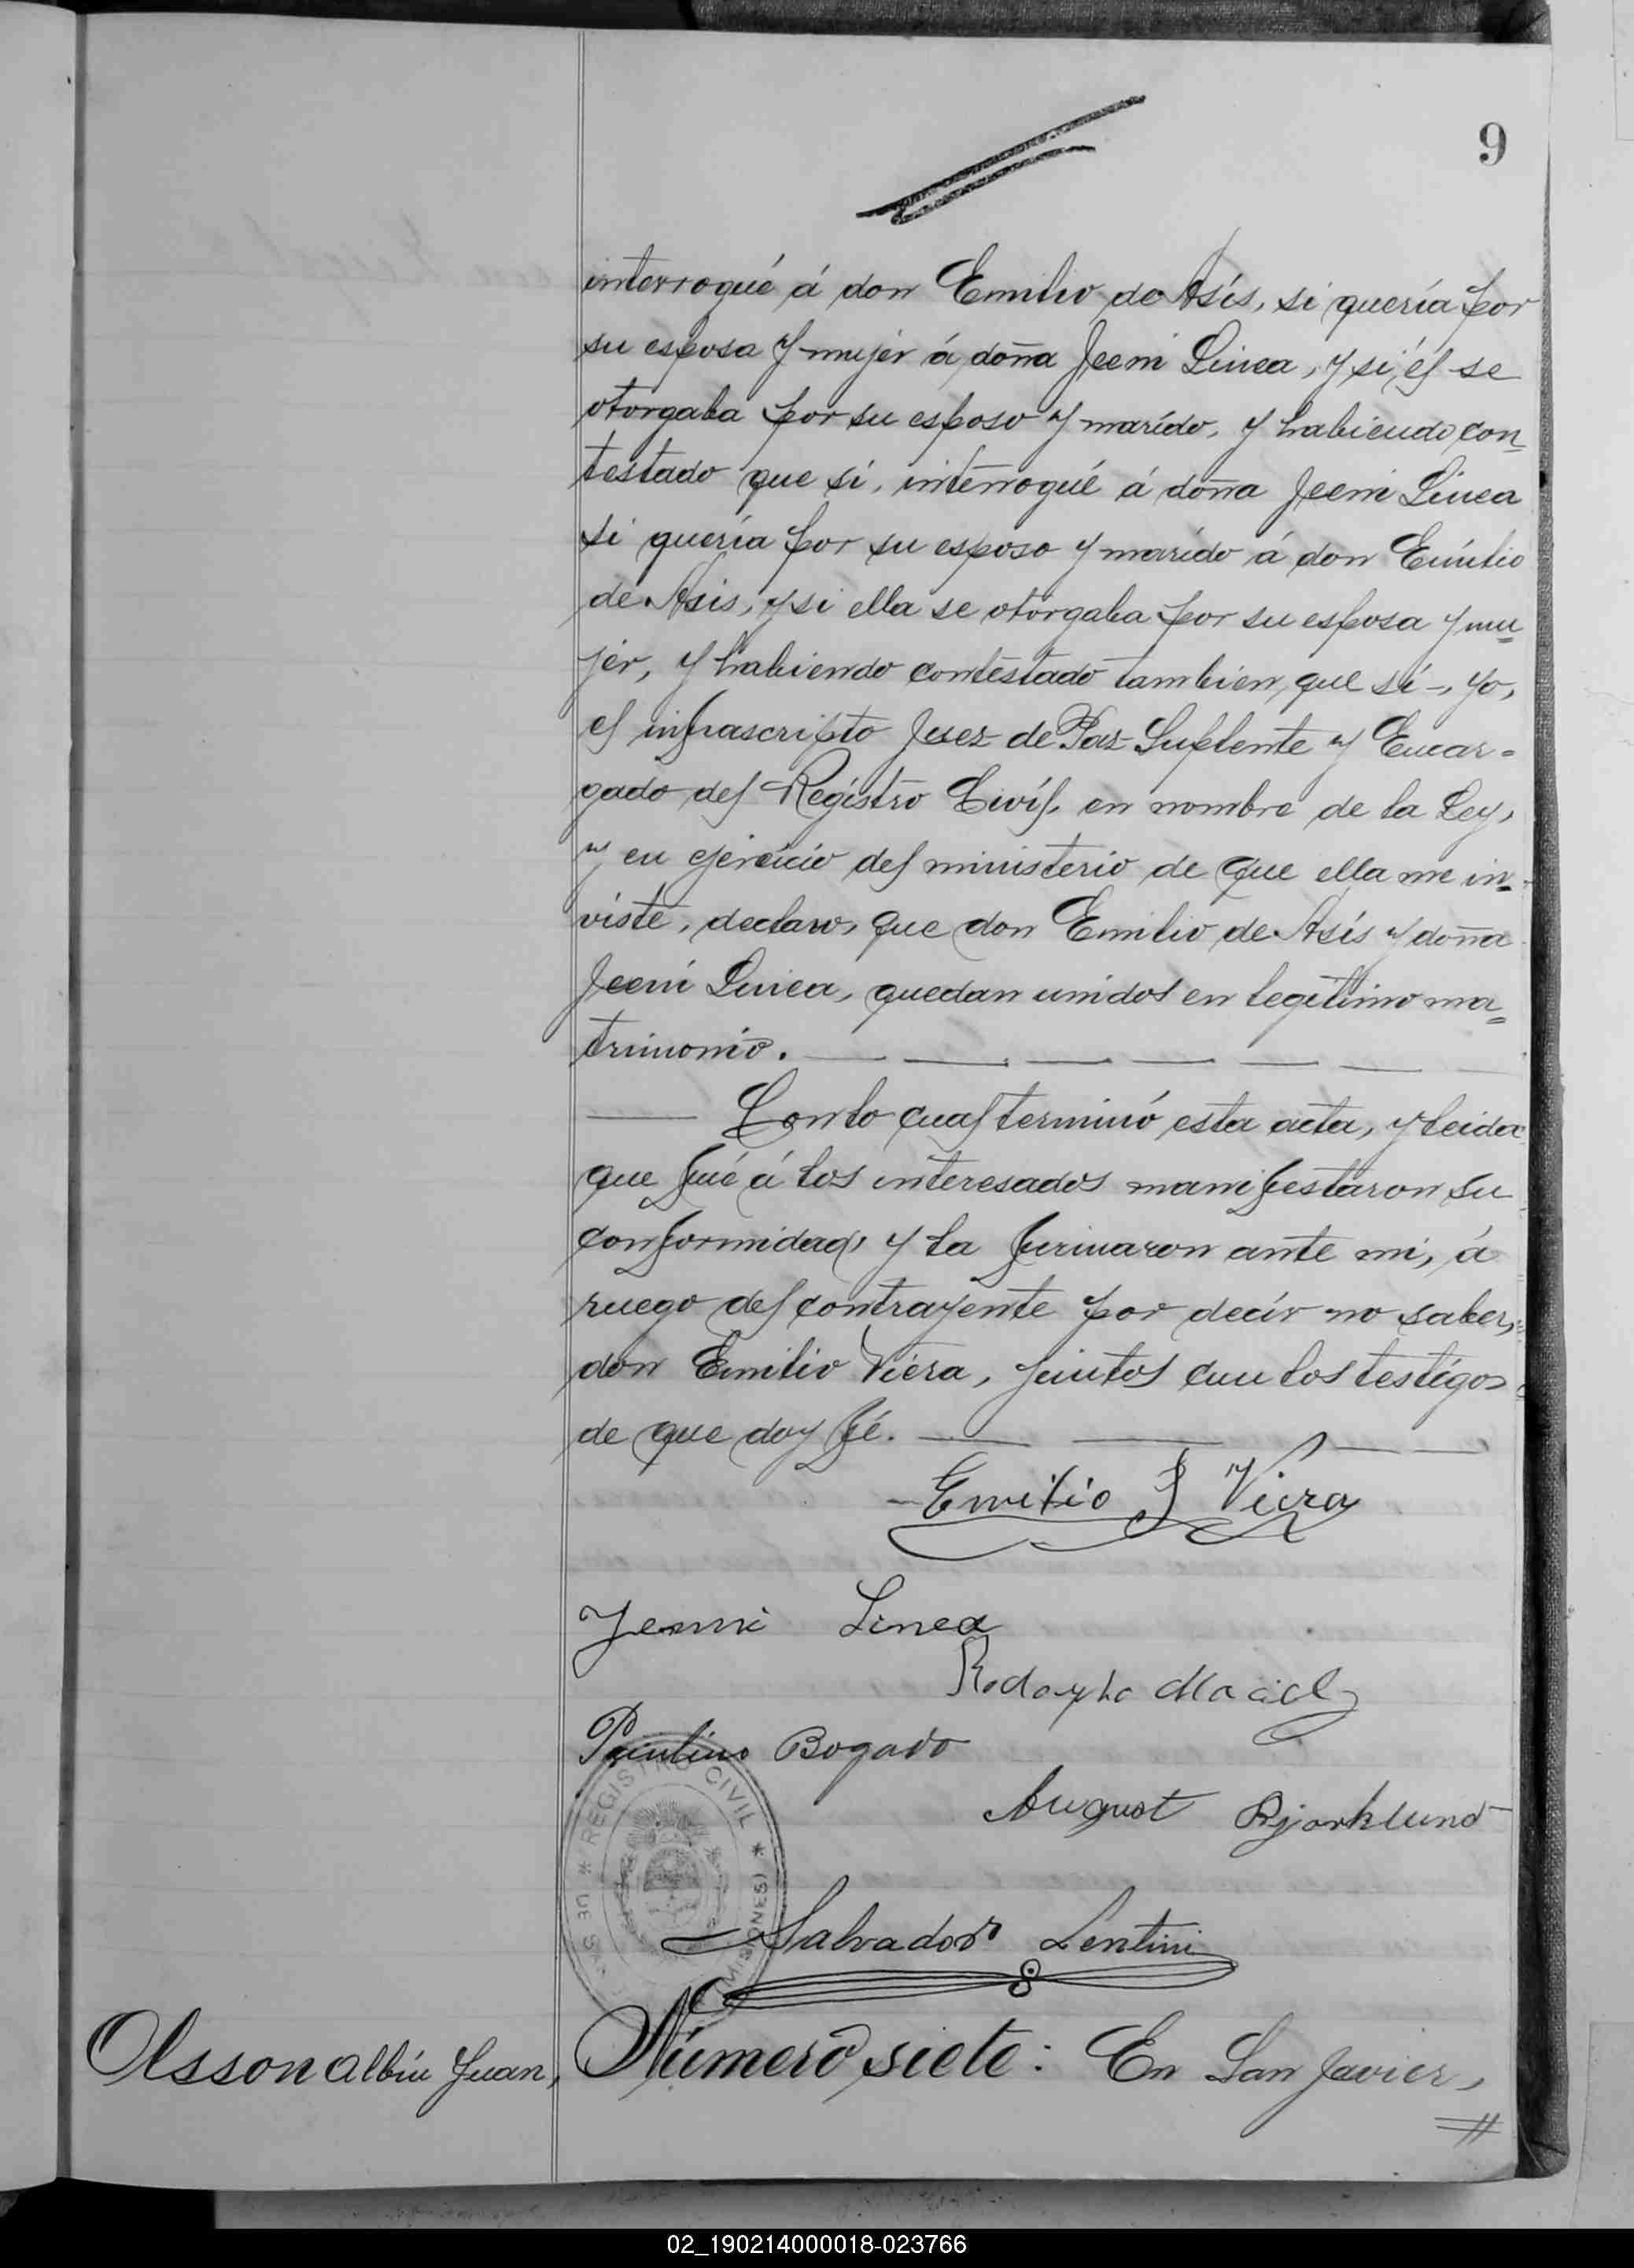 9
interrogué á don Emilio de Asís, si quería por
su esposa y mujer á doña Jeeni Linea, y si él se
otorgaba por su esposo y marído, y habiendo con
testado que si, interrogué á doña Jeeni Linea
si quería por su esposo y marído á don Emilio
de Asis, y si ella se otorgaba por su esposa y mu
jer, y habiendo contestado tambien, que sí -, yo,
el infrascripto Juez de Paz Suplente y Encar=
gado del Registro Civíl, en nombre de la Ley,
y en ejercicio del ministerio de que ella me in-
viste, declaro, que don Emilio de Asís y doña
Jeeni Linea, quedan unidos en legítimo ma=
trimonio.
Con lo cual terminó esta acta, y leida
que fué á los interesados manifestaron su
conformidad, y la firmaron ante mi, á
ruego del contrayente por decir no saber,
don Emilio Viera, juntos con los testigos
de que doy fé.
Emilio J Viera
Jenni Linea
Rodolpho Maciel
Paulino Bogado
August Bjorklund
REGISTRO CIVIL
DE SAN
(MISIONES)
Salvador Lentini
Olsson Albin Juan, Número siete: En San Javier,
02_190214000018-023766